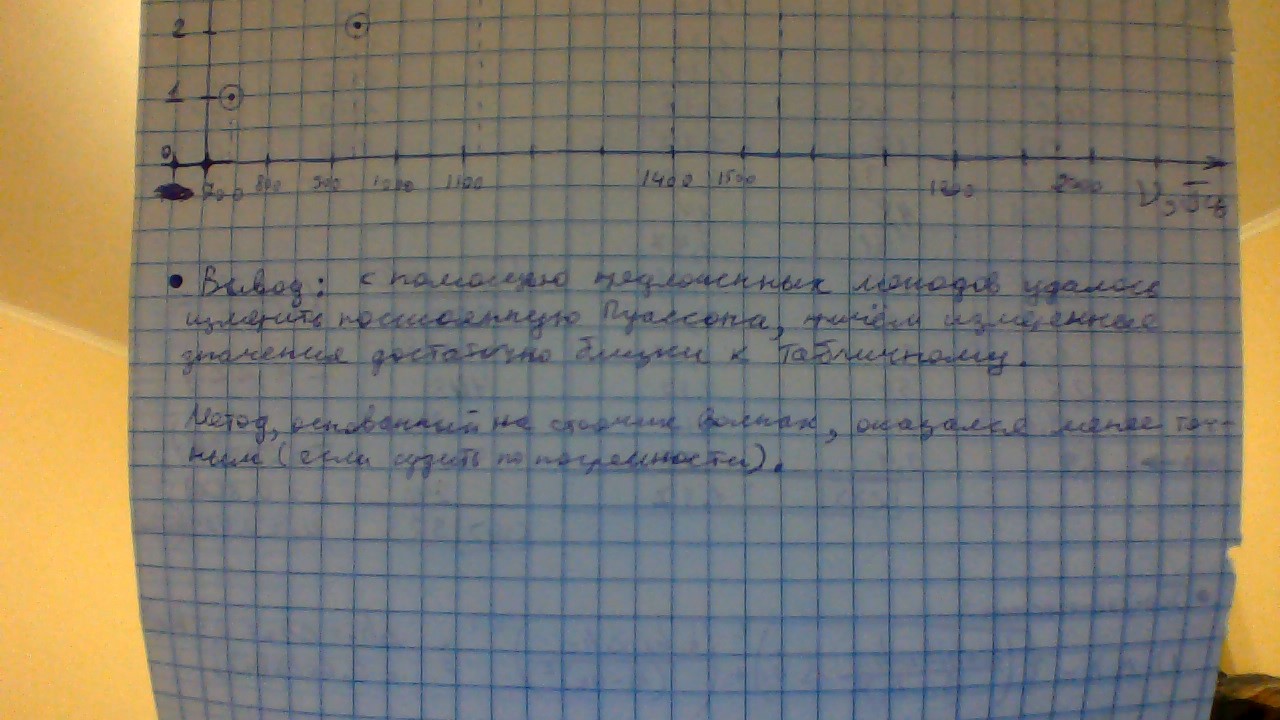 2
1
0
700 800 900 1000 1100 1400 1500 2000 ν, Гц
• Вывод: с помощью предложенных методов удалось
измерить постоянную Пуассона, причём измеренные
значения достаточно близки к табличному.
Метод, основанный на стоячих волнах, оказался менее точ-
ным (если судить по погрешности).